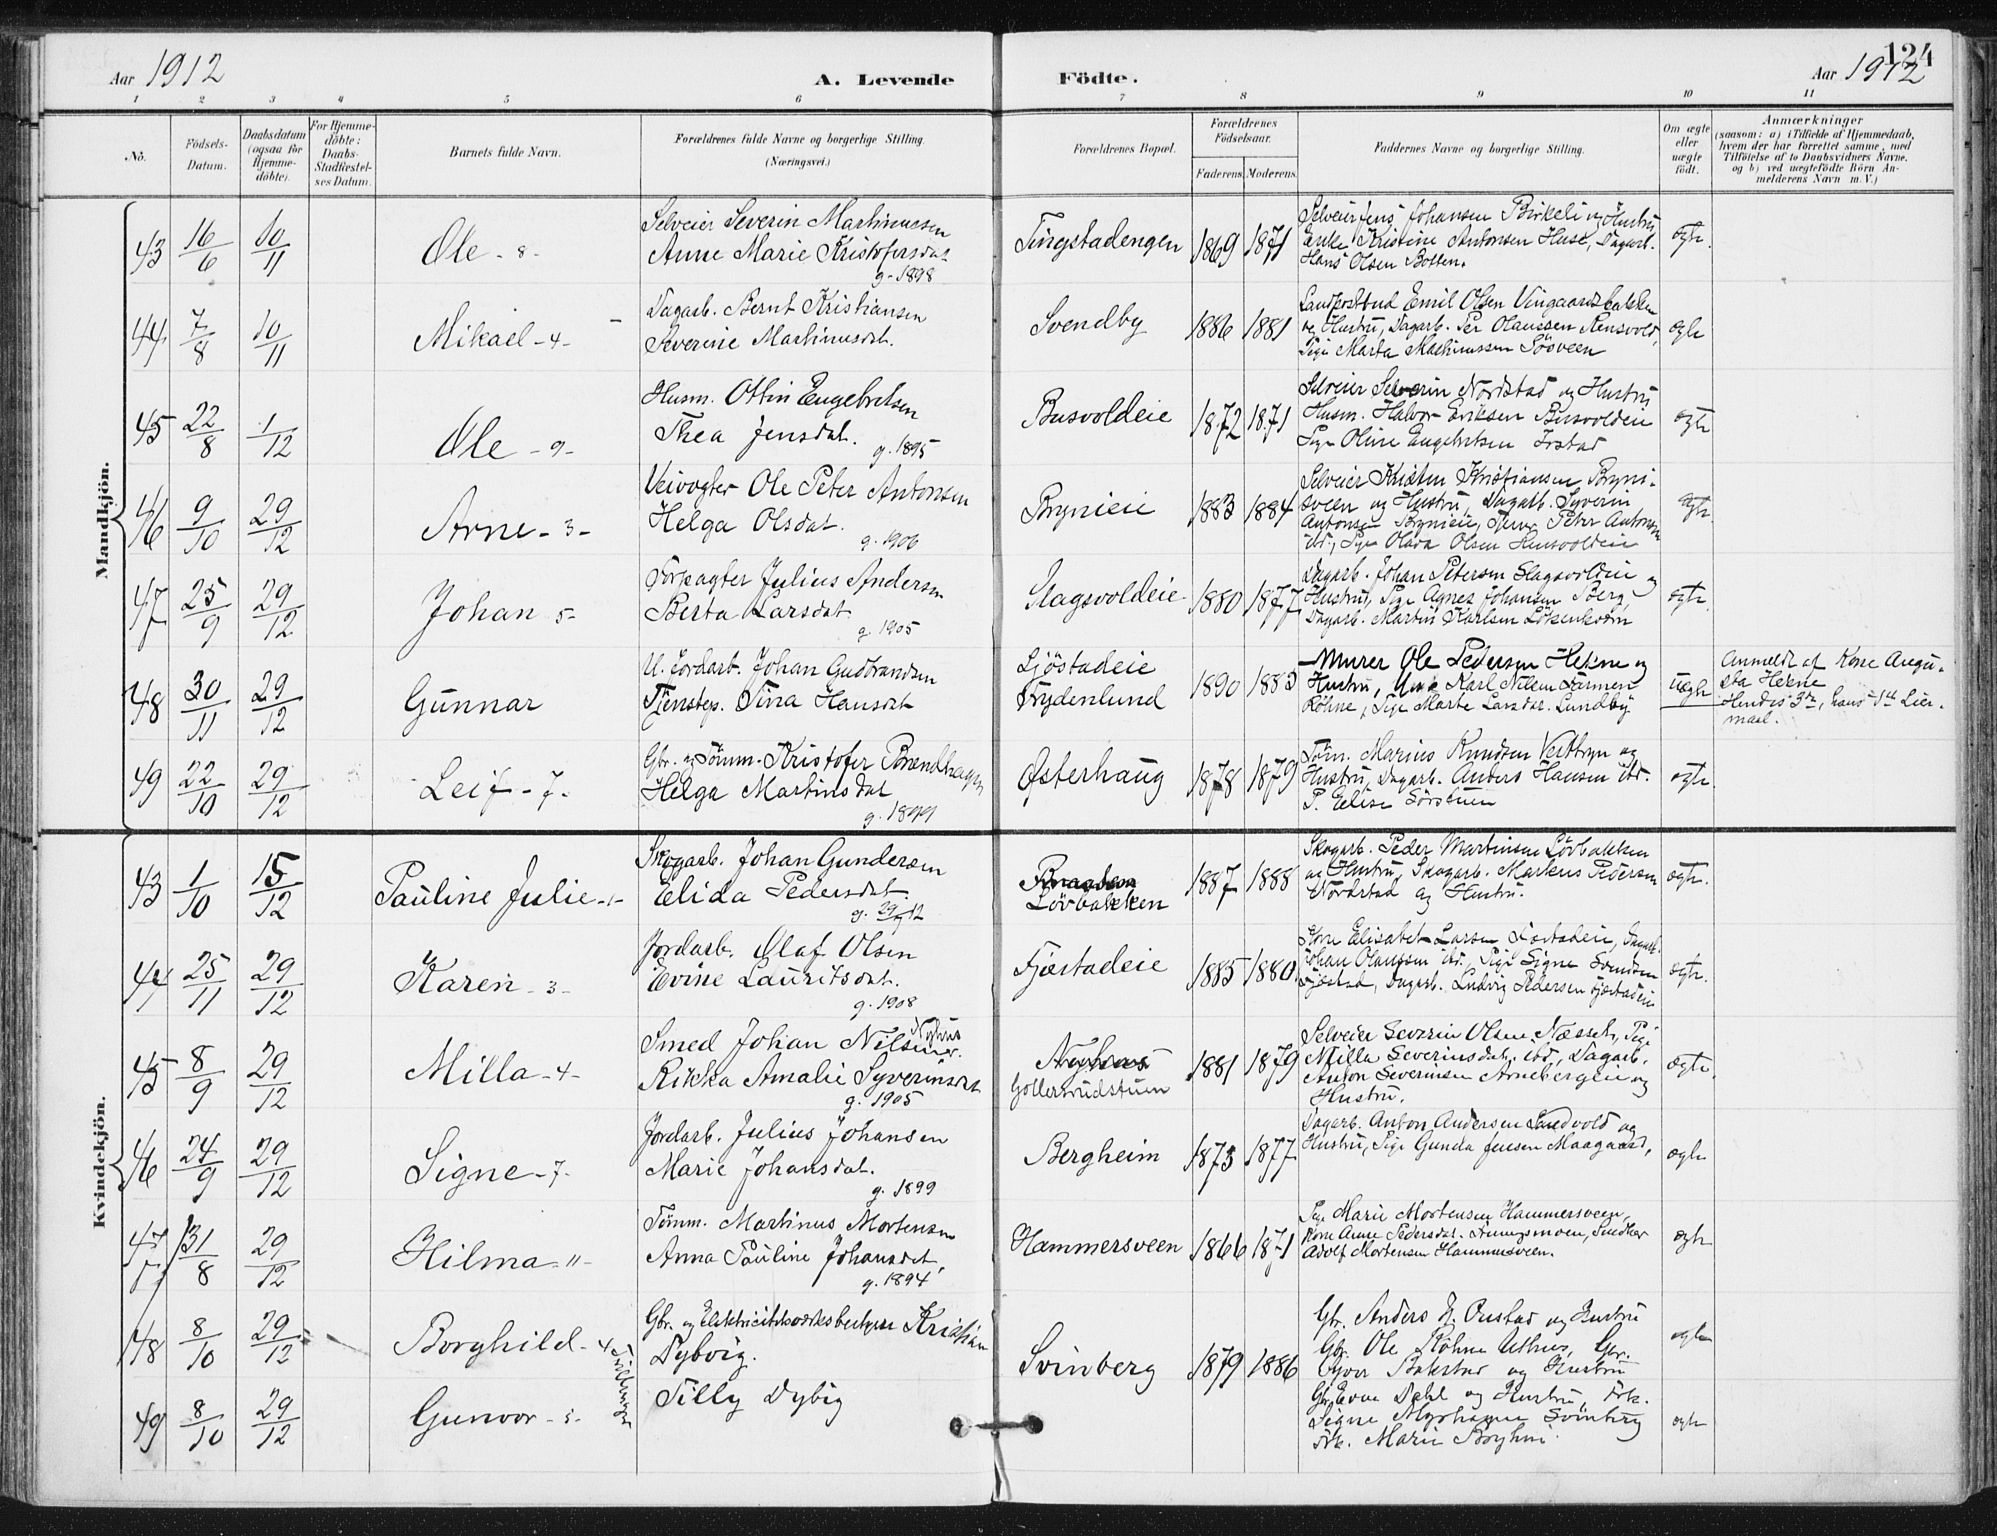 124
Aar 1912
A. Levende Födte.
Aar 1912
1 2 3 4 5 6 7 8 9 10 11
No.
Födsels-
Datum.
Daabsdatum
(ogsaa for
Hjemme-
döbte).
For Hjemme-
döbte:
Daabs-
Stadfæstel-
ses Datum.
Barnets fulde Navn.
Forældrenes fulde Navne og borgerlige Stilling.
(Næringsvei.)
Forældrenes Bopæl.
Forældrenes
Födselsaar.
Faderens.
Moderens.
Faddernes Navne og borgerlige Stilling.
Om ægte
eller
uægte
födt.
Anmærkninger
(saasom: a) i Tilfælde af Hjemmedaab,
hvem der har forrettet samme, med
Tilföielse af to Daabsvidners Navne,
og b) ved uægtefödte Börn An-
melderens Navn m. V.)
Mandkjön.
43 16/6 10/11 Ole - 8 -
Selveier Severin Martinussen
Anne Marie Kristofersdat.
g. 1898
Tingstadengen 1869 1871
Selveier Jens Johansen Birkeli og Hustru
Enke Kristine Antonsen Huse, Dagarb.
Hans Olsen Botten.
ægte.
44 7/8 10/11 Mikael - 4 -
Dagarb. Bernt Kristiansen
Severine Martinusdat.
Svendby 1886 1881
Landpostbud Emil Olsen Vingaardsbakken
og Hustru, Dagarb. Per Olaussen Rensvold,
Pige Marta Mathinussen Lösveen
ægte
45 22/8 1/12 Ole - 9 -
Husm. Ottin Engebretsen
Thea Jensdat.
g. 1895
Busvoldeie 1872 1871
Selveier Severin Nordstad og Hustru
Husm. Halvor Eriksen Busvoldeie
Pige Oline Engebretsen
ægte
46 9/10 29/12 Arne - 3 -
Veivogter Ole Peter Antonsen
Helga Olsdat.
g. 1906
Brynieie 1883 1884
Selveier Kristen Kristiansen Bryni-
sveen og Hustru, Dagarb. Syverin
Antonsen Brynieie, Peter Antonsen
ibd., Pige Olava Olsen
ægte.
47 25/9 29/12 Johan 5 -
Forpagter Julius Andersen
Berta Larsdat.
g. 1905
Slagsvoldeie 1880 1877
Dagarb. Johan Petersen Slagsvoldeie og
Hustru, Pige Agnes Johansen Berg,
Dagarb. Martin Karlsen
ægte.
48 30/11 29/12 Gunnar
U. Jordarb. Johan Gudbrandsen
Tjenstep. Tina Hansdat
Ljöstadeie
Frydenlund 1890 1883
Murer Ole Pedersen Hekne og
Hustru, Karl Nilsen
Röhne, Pige Marte Larsdat. Lundby
uægte
Anmeldt af Kone Augu-
sta Hekne
Hendes 3die, hans 1ste Leier-
maal.
49 22/10 29/12 Leif - 7 -
Gbr. og Tömm. Kristofer Brændhagen
Helga Martinsdat
g. 1899
Østerhaug 1878 1879
Töm. Marius Knudsen og
Hustru, Dagarb. Anders Hansen ibd.
P. Elise Sörstuen
ægte.
Kvindekjön.
43 1/10 15/12 Pauline Julie - 1 -
Skogarb. Johan Gundersen
Elida Pedersdat.
Lövbakken 1887 1888
Skogarb. Peder Martinsen Lövbakken
og Hustru, Skogarb. Markus Pedersen
Nordstad og Hustru.
ægte.
44 25/11 29/12 Karen - 3 -
Jordarb. Olaf Olsen
Evine Lauritsdat.
g. 1908
Fjæstadeie 1885 1880
Kone Elisabet Larsen Fjæstadeie, Dagarb.
Johan Olaussen ibd., Pige Signe Svendsen
Fjæstad, Dagarb. Ludvig Pedersen Fjæstadeie
ægte.
45 8/9 29/12 Milla - 4 -
Smed Johan Nilsen Nyhus
Rikka Amalie Syverinsdat
g. 1905
Nyhus
Gollertrudstuen 1881 1879
Selveier Severin Olsen Næsset, Pige
Milla Severinsdat. ibd., Dagarb.
Anton Severinsen Arnebergeie og
Hustru.
ægte.
46 24/9 29/12 Signe - 7 -
Jordarb. Julius Johansen
Marie Johansdat.
g. 1899
Bergheim 1873 1877
Dagarb. Anton Andersen Sandvold og
Hustru, Pige Gunda Jensen Maagaard,
ægte
47 31/8 29/12 Hilma - 11 -
Tömm. Martinus Mortensen
Anna Pauline Johansdat.
g. 1894
Hammersveen 1866 1871
Pige Marie Mortensen Hammersveen,
Kone Anne Pedersdat. Snedker
Adolf Mortensen Hammersveen.
ægte
48 8/10 29/12 Borghild - 4
Tvillinger
Gbr. og Elektricitetsverksbestyrer Kristian
Dybvig.
Svinberg 1879 1886
Gbr. Anders H. Onstad og Hustru
Gbr. Ole Röhne Uthus, Gbr.
og Hustru
ægte
49 8/10 29/12 Gunvor - 5 -
Tilly Dybig
Gbr. Dahl og Hustru, Frk.
Signe Svinberg
Frk. Marie
ægte